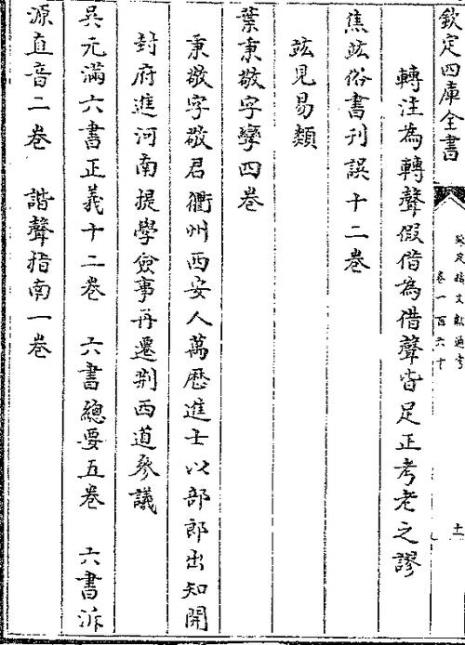 欽定四庫全書
欽定續文獻通考
卷一百六十
十一
轉注為轉聲假借為借聲皆足正考老之謬
焦竑俗書刊誤十二卷
竑見易類
葉秉敬字孿四卷
秉敬字敬君衢州西安人萬歷進士以部郎出知開
封府進河南提學僉事再遷荆西道參議
吳元滿六書正義十二卷 六書總要五卷 六書泝
源直音二卷 諧聲指南一卷